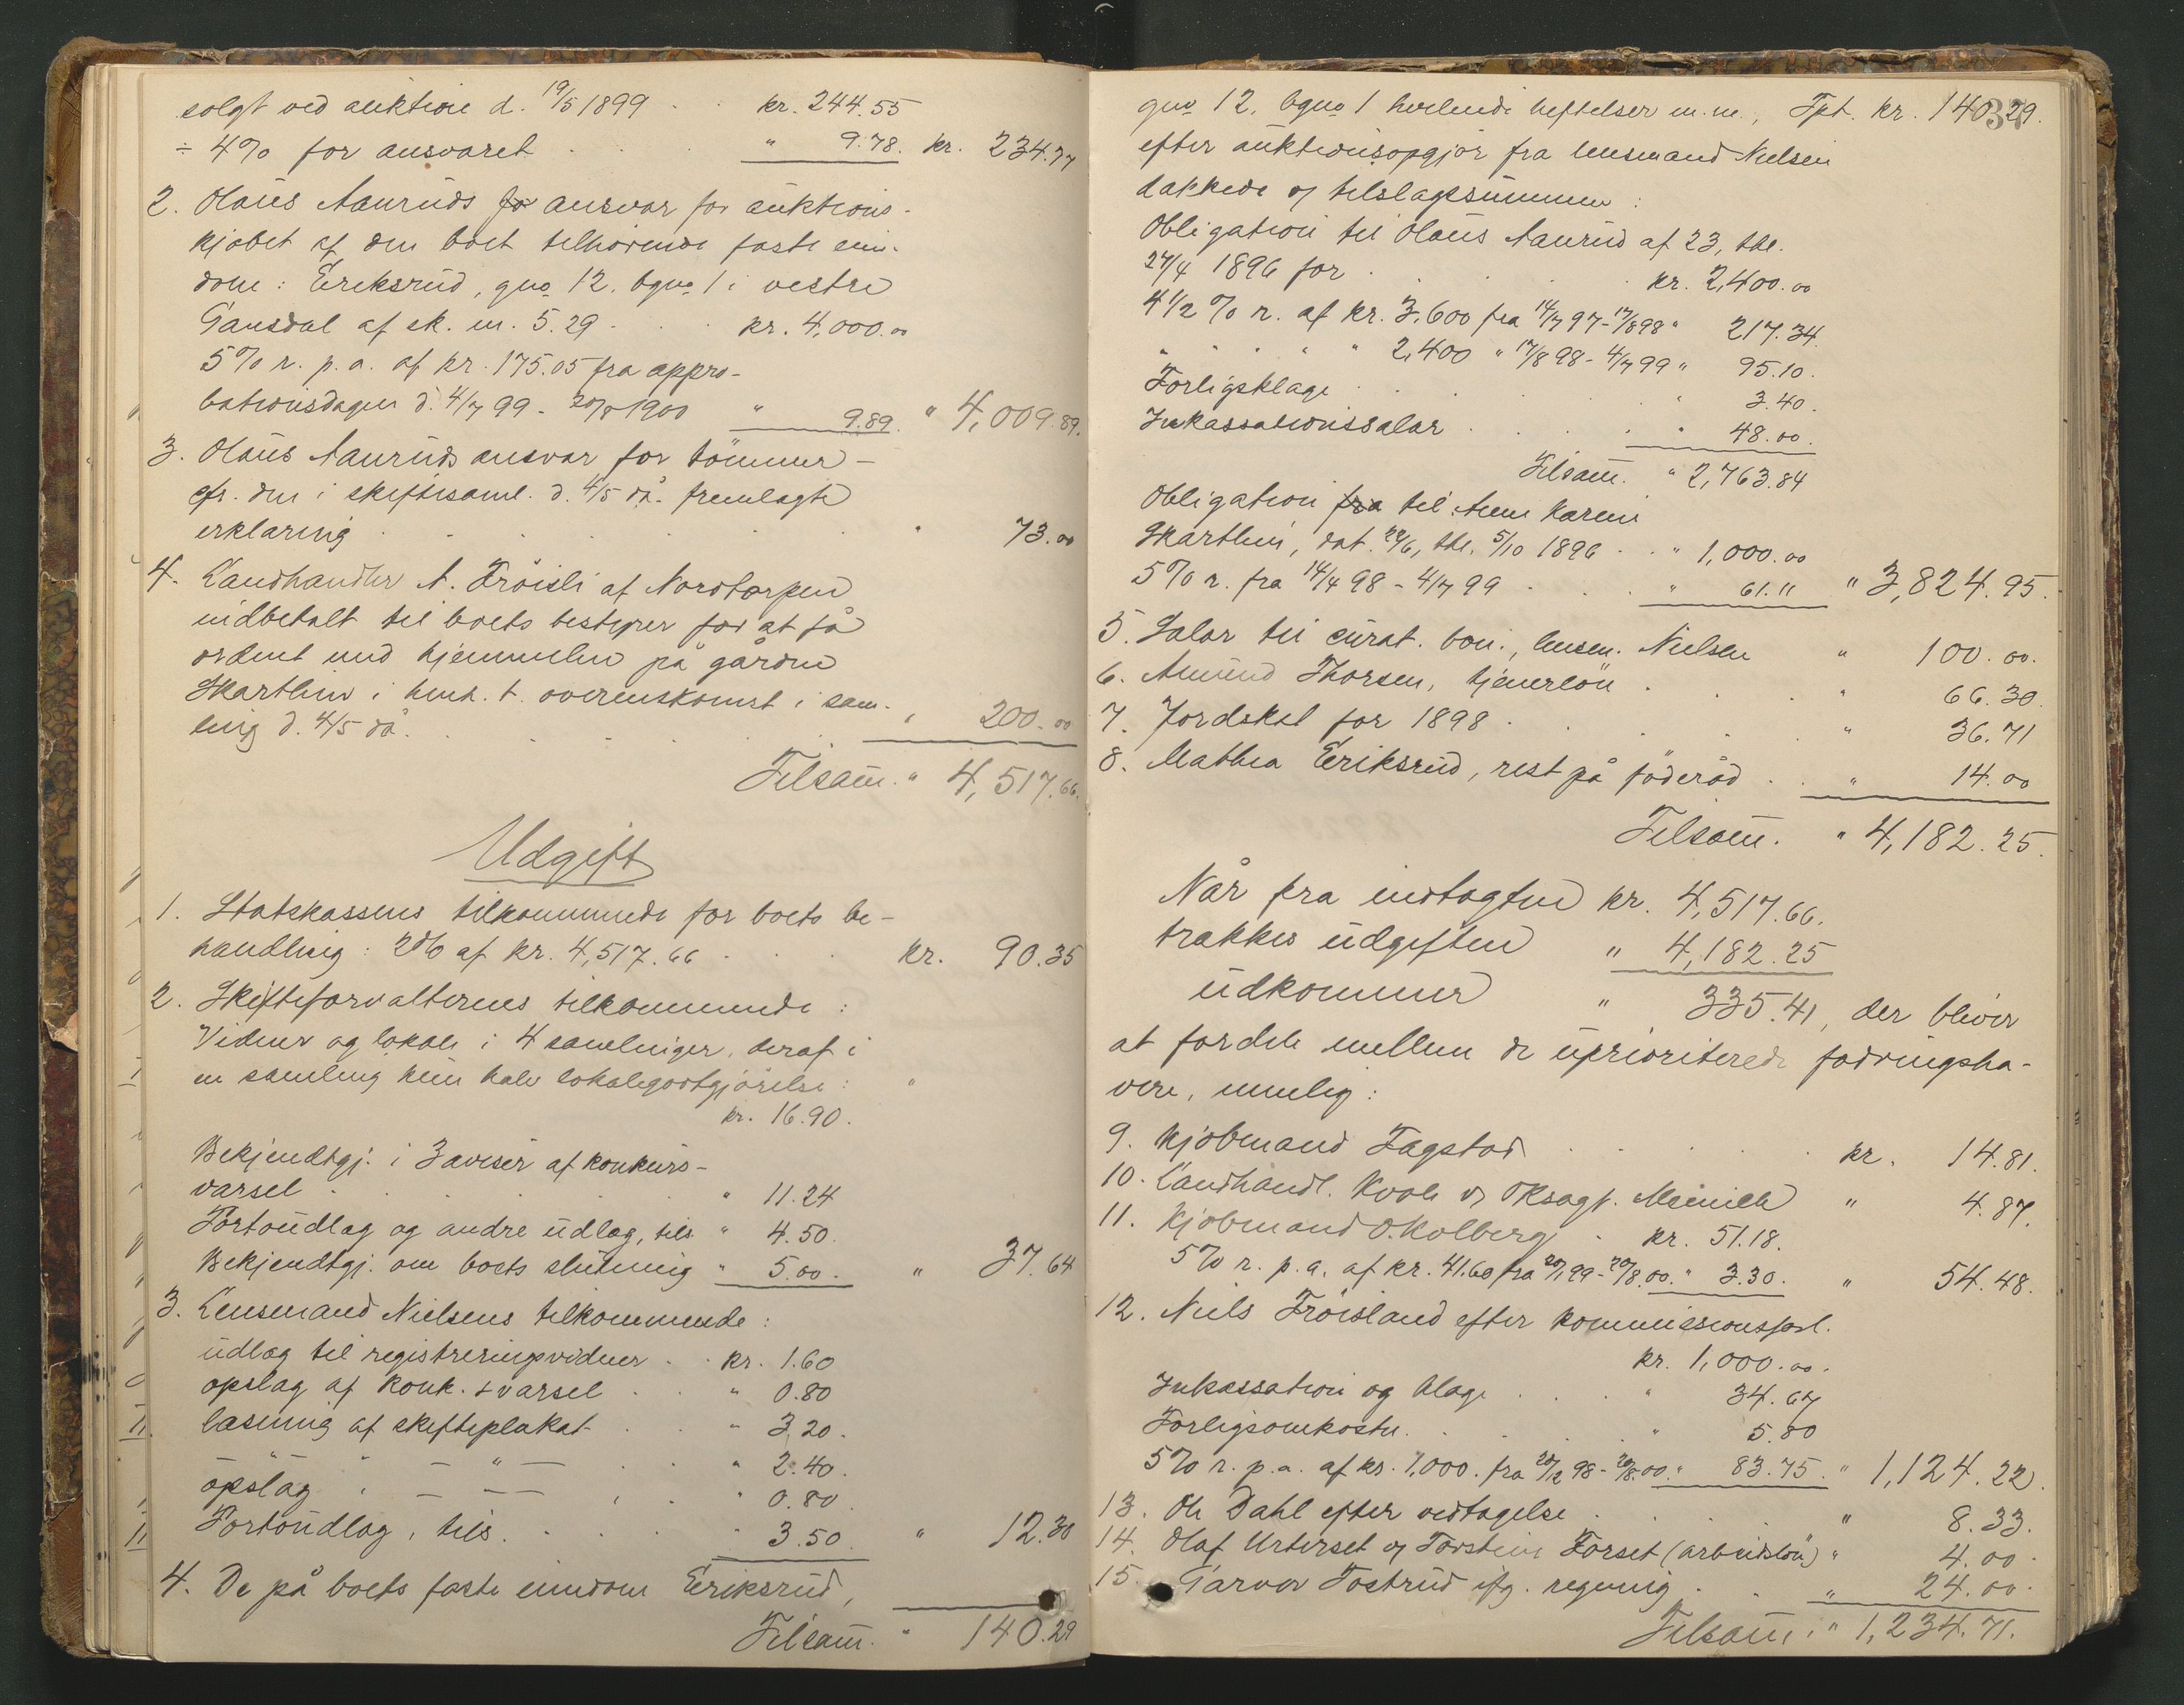 solgt ved auktion d. 19/5 1899 . . kr. 244.55
÷ 4% for ansvaret . . . " 9.78. kr. 234.77
2. Olaus Aauruds fo ansvar for auktions-
kjøbet af den boet tilhørende faste ein-
dom: Eriksrud, gno 12. bgno 1 i vestre
Gausdal af sk. m. 5.29 . . . kr. 4,000.00
5% r. p. a. af kr. 175.05 fra appro-
bationsdagen d. 4/7 99 - 20/8 1900 " 9.89. " 4,009.89.
3. Olaus Aauruds ansvar for tömmer -
cfr. den i skiftesaml. d. 4/5 då. fremlagte
erklæring . . . . . " 73.00
4. Landhandler A. Fröisli af Nordtorpen
indbetalt til boets bestyrer for at få
ordent med hjemmelen på gården
Skartlien i henh. t. overenskomst i sam-
ling d. 4/5 då. . . . . . " 200.00
Tilsam. " 4,517.66.
Udgift
1. Statskassens tilkommende for boets be-
handling: 2% af kr. 4,517.66 . . . kr. 90.35
2. Skifteforvalterens tilkommende:
Vidner og lokale i 4 samlinger, deraf i
en samling kun halv lokalegodtgjörelse: "
kr. 16.90.
Bekjendtgj. i 3 aviser af konkurs-
varsel . . . . . " 11.24
Portoudlæg og andre udlæg, tils. " 4.50.
Bekjendtgj. om boets slutning " 5.00. " 37.64
3. Lensmand Nielsens tilkommende:
udlæg til registreringsvidner . . kr. 1.60
opslag af konk. varsel . . " 0.80
læsning af skifteplakat . . " 3.20.
" — " — . . " 2.40.
opslag " — — . . " 0.80.
Portoudlæg, tils. . . . " 3.50. " 12.30
4. De på boets faste eiendom Eriksrud,
Tilsam. " 140.29
37
gno 12. bgno 1 hvilende heftelser m.m., Tpt. kr. 140.29.
efter auktionsopgjör fra lensmand Nielsen
dækkede af tilslagssummen:
Obligation til Olaus Aaurud af 23, thl.
27/4 1896 for . . . . kr. 2,400.00
4 1/2 % r. af kr. 3,600 fra 14/7 97 - 17/8 98 " 217.34.
" " " " " 2,400 " 17/8 98 - 4/7 99 " 95.10.
Forligsklage . . . . . " 3.40.
Inkassationssalær . . . . " 48.00.
Tilsam. " 2,763.84
Obligation fra til Anne Karine
Skartlien, dat. 22/6, thl. 5/10 1896 . . " 1,000.00
5% r. fra 14/4 98 - 4/7 99 . . . " 61.11 " 3,824.95.
5. Salær til curat. bon., lensm. Nielsen " 100.00.
6. Amund Thorsen, tjenerlön . . . " 66.30.
7. Jordskat for 1898 . . . . . " 36.71
8. Mathea Eriksrud, rest på föderåd . . " 14.00
Tilsam. " 4,182.25.
Når fra indtægten kr. 4,517.66.
trækkes udgiften " 4,182.25
udkommer " 335.41, der bliver
at fordele mellem de uprioriterede fodringsha-
vere, nemlig:
9. Kjøbmand Fagstad . . . . . kr. 14.81.
10. Landhandl. Kvale v/ Oksagf. Meinich " 4.87.
11. Kjøbmand O. Kolberg . kr. 51.18.
5% r. p. a. af kr. 41.60 fra 20/1 99 - 20/8.00. " 3.30. " 54.48.
12. Niels Fröisland efter kommissionsforl.
kr. 1,000.00.
Inkassation og klage . . . " 34.67
Forligsomkostn. . . . . " 5.80
5% r. p. a. af kr. 1,000. fra 20/12 98 - 20/8.00. " 83.75. " 1,124.22.
13. Ole Dahl efter vedtagelse . . . . " 8.33.
14. Olaf Urterset og Torstein Forset (arbeidslön) " 4.00.
15. Tarver Tostrud efg. regning . . . " 24.00.
Tilsam. " 1,234.71.